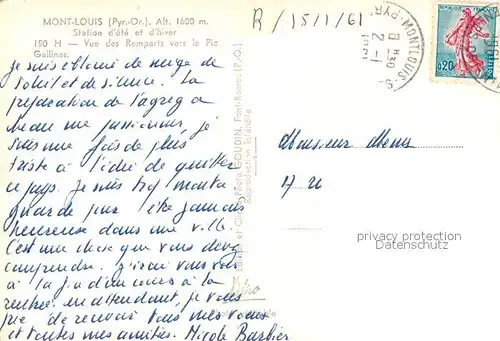 MONT-LOUIS (Pyr.-Or.). Alt. 1600 m.
Station d'été et d'hiver
150 H — Vue des Remparts vers le Pic
Gallinas.
je suis de neige de
soleil et de silence. La
préparation de l'agreg a
beau me passionner, je
suis une fois de plus
triste à l'idée de quitter
ce pays. Je suis trop monta
gnarde pour être jamais
heureuse dans une ville.
C'est une chose que vous devez
comprendre. J'irai vous voir
à la fin d'un cours à la
rentrée. en attendant, je vous
prie de recevoir tous mes vœux
et toutes mes amitiés. Nicole Barbier
GOUDIN, Font-Romeu (P.-O.)
Reproduction interdite
R / 15/1/61
MONTLOUIS-S-
PYR.
H30
2-1
1961
0,20
Monsieur
privacy protection
Datenschutz